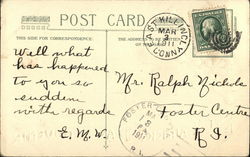 POST CARD
THIS SIDE FOR CORRESPONDENCE.
THE ADDRESS
EAST KILLINGLY
MAR
3
1911
CONN.
Well what
has happened
to you so
sudden
with regards
E. M. W.
Mr. Ralph Nichols
Foster Centre
R. I.
FOSTER
MAR